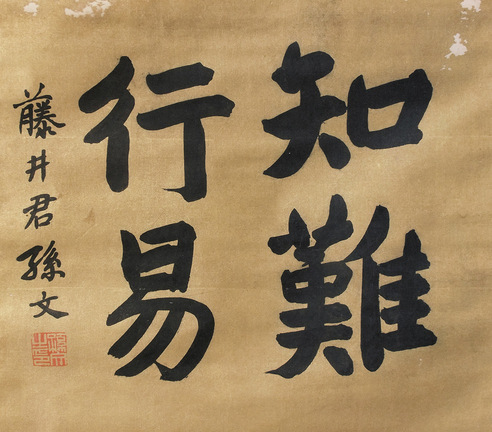 知難
行易
藤井君孫文